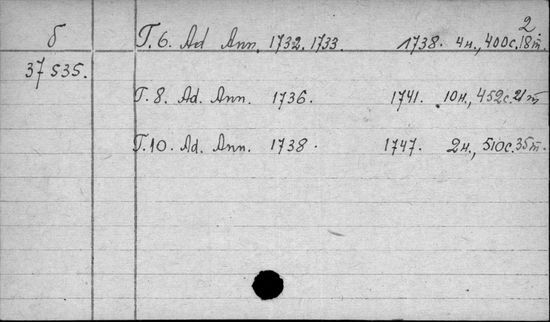 2.
б Т. 6. Ad Ann. 1732. 1733. 1738. 4н., 400с. 18т.
37535.
Т. 8. Ad. Ann. 1736. 1741. 10н., 452с. 21т
Т. 10. Ad. Ann. 1738. 1747. 2н., 510с. 35т.